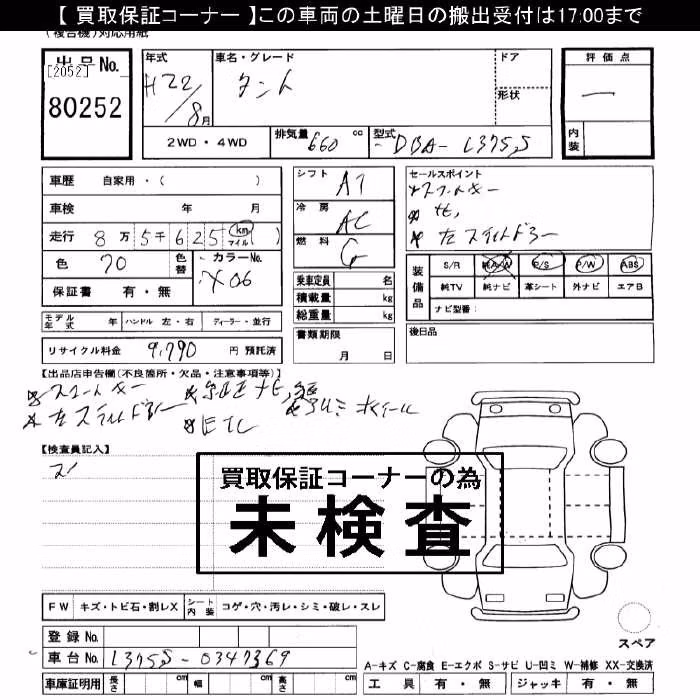 【 買取保証コーナー 】この車両の土曜日の搬出受付は17:00まで
(複合機)対応用紙
出品No.
[2052]
80252
年式
H22/8月
車名・グレード
タント
ドア
形状
評価点
―
内装
2WD・4WD
排気量 660 cc
型式 DBA- L375S
車歴 自家用・( )
車検 年 月
走行 8万5千625 km マイル ( )
色 70
色替
カラーNo. X06
保証書 有・無
シフト AT
冷房 AC
燃料 G
乗車定員 名
積載量 kg
総重量 kg
書類期限
月 日
セールスポイント
スマートキー
ナビ,
左スライドドアー
装備品
S/R ナビ P/S P/W ABS
純TV 純ナビ 革シート 外ナビ エアB
ナビ型番:
後日品
モデル年式 年 ハンドル 左・右 ディーラー・並行
リサイクル料金 9,790 円 預託済
【出品店申告欄(不良箇所・欠品・注意事項等)】
スマートキー 純正ナビ, 純アルミホイール
左スライドドアー ETC
【検査員記入】
買取保証コーナーの為
未検査
FW キズ・トビ石・割レX シート内装 コゲ・穴・汚レ・シミ・破レ・スレ
登録No.
車台No. L375S-0347369
車庫証明用 長さ cm 幅 cm 高さ cm
スペア
A-キズ C-腐食 E-エクボ S-サビ U-凹ミ W-補修 XX-交換済
工具 有・無 ジャッキ 有・無